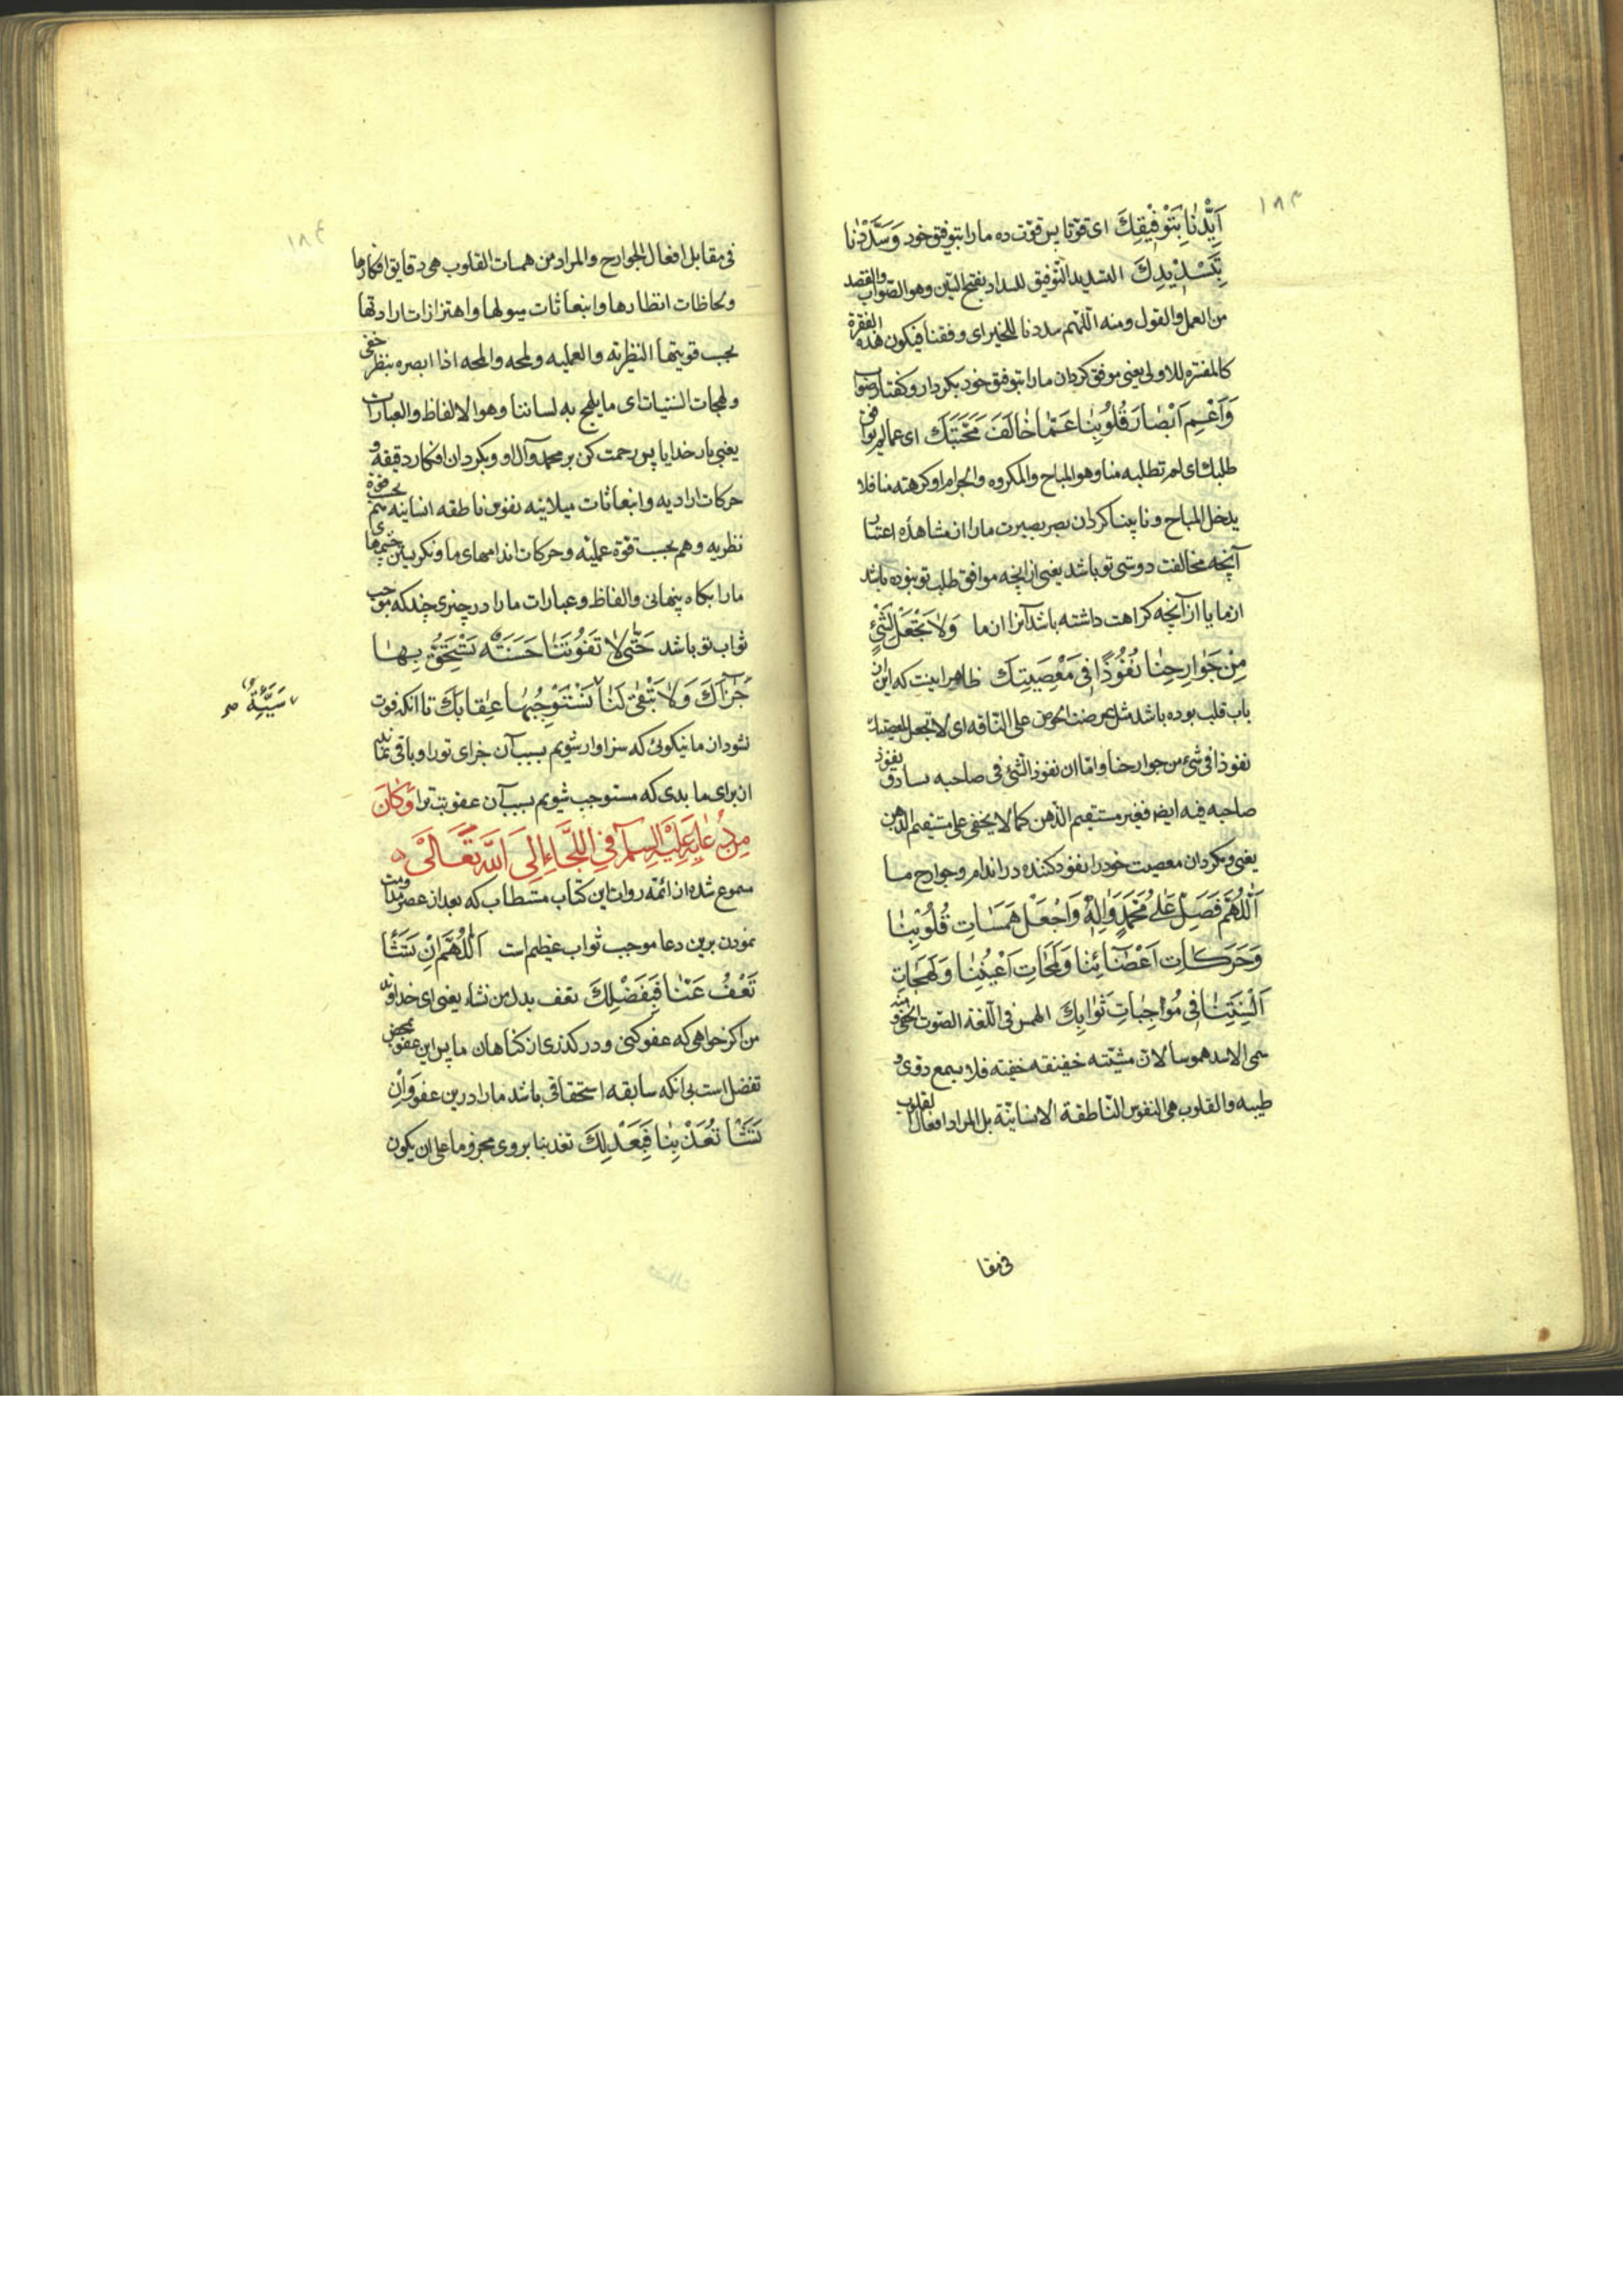 ١٨٣
اَيِّدْنا بِتَوْفيْقِكَ ای قوّنا پس قوّت ده ما را بتوفیق خود وَسَدِّدْنا
بِتَسْدِيْدِكَ التسدید التّوفیق للسداد بفتح السّین وهو الصّواب والقصد
من العمل والقول ومنه اللّهم سددنا للخیر ای وفقنا فیکون هذه الفقرة
کالمفسّره للاولی یعنی موفق کردان ما را بتوفیق خود بکردار وکفتار صواب
وَاَعْمِ اَبْصارَ قُلُوْبِنا عَمّا خالَفَ مَحَبَّتَكَ ای عما لم یوافق
طلبك ای لم تطلبه منا وهو المباح والمکروه والحرام او کرهته منا فلا
یدخل المباح ونابینا کردان بصر بصیرت ما را از مشاهده اعتبار
آنچه مخالفت دوستی تو باشد یعنی از انچه موافق طلب تو نبوده باشد
از ما یا از آنچه کراهت داشته باشد آنرا از ما وَلا تَجْعَلْ لِشَيْءٍ
مِنْ جَوارِحِنا نُفُوْذًا فی مَعْصِيَتِكَ ظاهر اینست که این از
باب قلب بوده باشد مثل عرضت الحوض علی النّاقه ای لا تجعل لمعصیتك
نفوذا فی شیء من جوارحنا وامّا ان نفوذ الشّیء فی صاحبه یساوق نفوذ
صاحبه فیه ایضا فغیر مستقیم الذّهن کما لا یخفی علی مستقیم الذهن
یعنی ومکردان معصیت خود را نفوذ کننده در اندام وجوارح ما
اَللّهُمَّ فَصَلِّ عَلی مُحَمَّدٍ وَالِهِ وَاجْعَلْ هَمَساتِ قُلُوْبِنا
وَحَرَكاتِ اَعْضائِنا وَلَمَحاتِ اَعْيُنِنا وَلَهَجاتِ
اَلْسِنَتِنا فی مُوْجِباتِ ثَوابِكَ الهمس فی اللّغة الصّوت الخفی ومنه
سمی الاسد هموسا لان مشیّته خفیفة خفیّه فلا یسمع دوی و
طیبه والقلوب هی النفوس النّاطقة الانسانیّة بل المراد افعال القلوب
فی مقا
١٨٤
فی مقابل افعال الجوارح والمراد من همسات القلوب هی دقایق افکارها
ولحاظات انظارها وانبعاثات میولها واهتزازات ارادتها
بحسب قوتیها النظریّه والعملیه ولمحه والمحه اذا ابصره بنظر خفی
ولهجات السنتنا ای ما یلهج به لساننا وهو الالفاظ والعبارات
یعنی بار خدایا پس رحمت کن بر محمد وآل او وبکردان افکار دقیقه و
حرکات ارادیه وانبعاثات میلانیه نفوس ناطقه انسانیه هم بحسب قوة
نظریه وهم بحسب قوّة عملیّه وحرکات اندامهای ما ونکریستن چشمهای
ما را بکاه پنهانی والفاظ وعبارات ما را در چیزی چند که موجب
ثواب تو باشد حَتّی لا تَفُوْتَنا حَسَنَةٌ نَسْتَحِقُّ بِها
جَزاءَكَ وَلا تَبْقی لَنا نَسْتَوْجِبُ بِها عِقابَكَ تا آنکه فوت
سَيِّئَةٌ صح
نشود از ما نیکوئی که سزاوار شویم بسبب آن جزای تو را وباقی نماند
از برای ما بدی که مستوجب شویم بسبب آن عقوبت ترا وَكانَ
مِنْ دُعائِهِ عَلَيْهِ السَّلامُ فِی اللَّجَاءِ اِلَی اللهِ تَعالی
مسموع شده از ائمّه روات این کتاب مستطاب که بعد از عصر مداومت
نمودن برین دعا موجب ثواب عظیم است اَللّهُمَّ اِنْ تَشَأْ
تَعْفُ عَنّا فَبِفَضْلِكَ تعف بدل من تشاء یعنی ای خداوند
من اکر خواهی که عفو کنی ودر کذری از کناهان ما پس این عفو بمحض
تفضل است بی انکه سابقه استحقاقی باشد ما را درین عفو وَاِنْ
تَشَأْ تُعَذِّبْنا فَبِعَدْلِكَ تعذبنا یروی مجزوما علی ان یکون